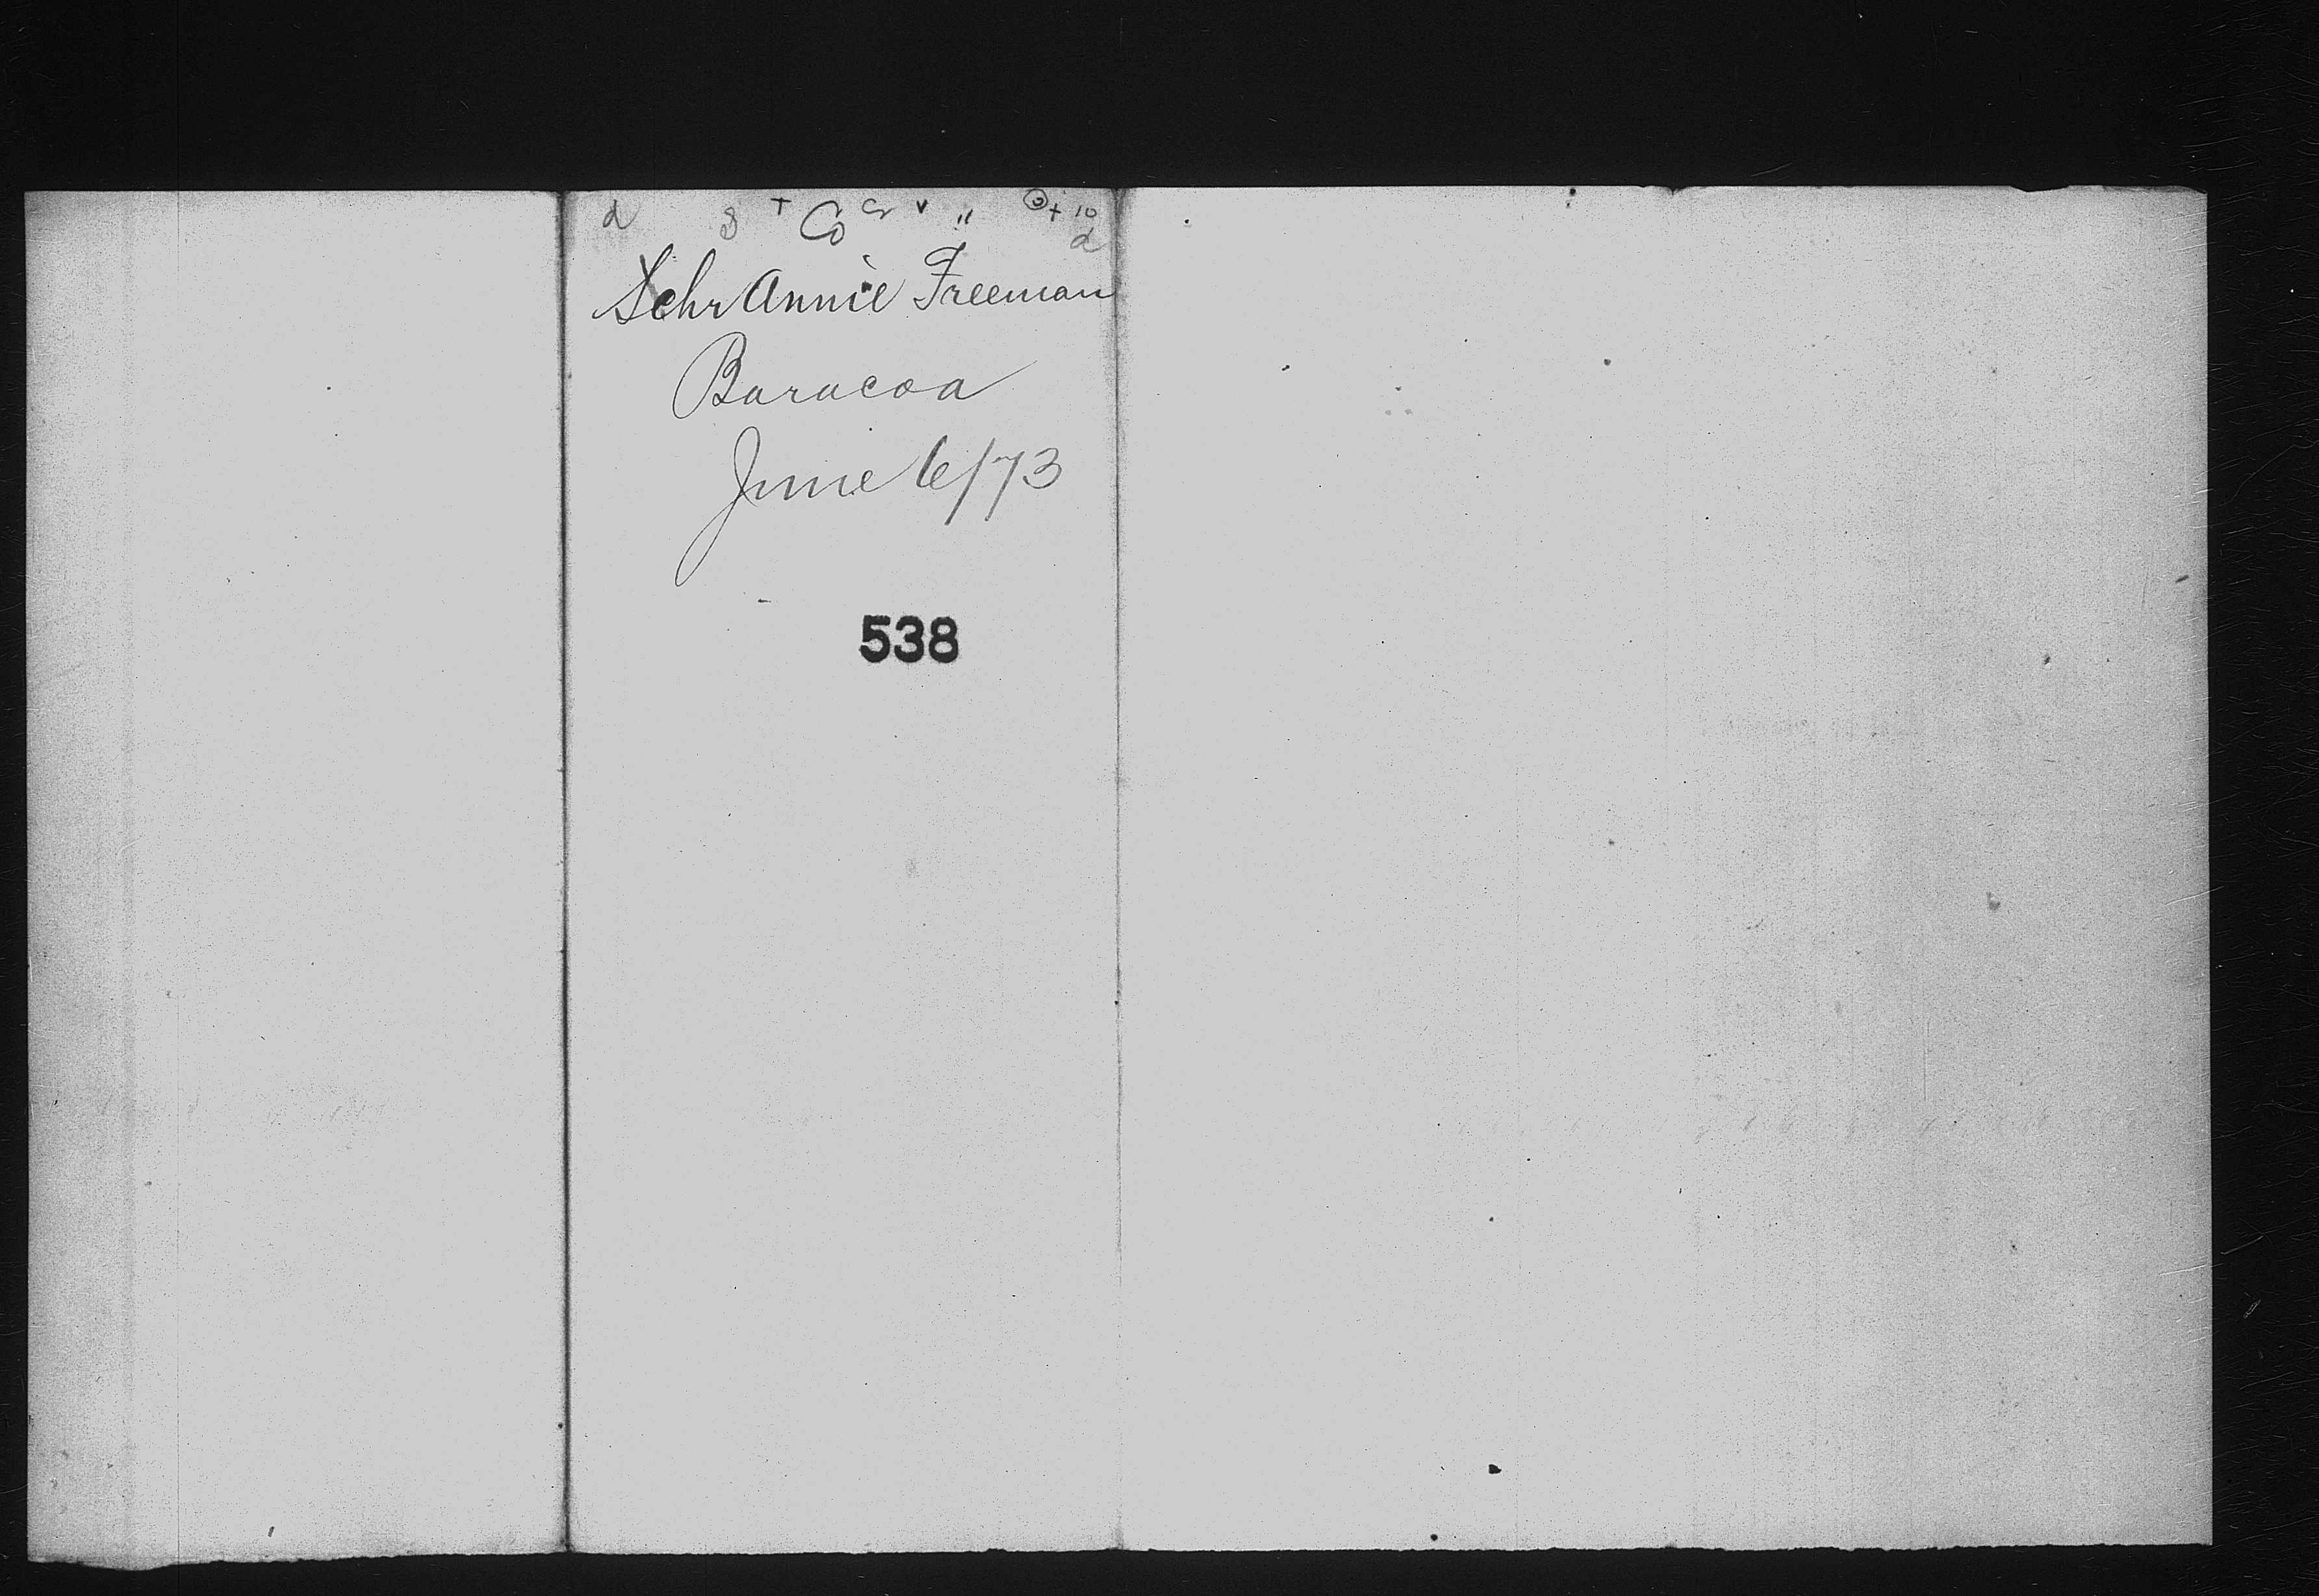 d 8 + Co Cr v " 3 + 10
d
Schr Annie Freeman
Baracoa
June 6/73
538